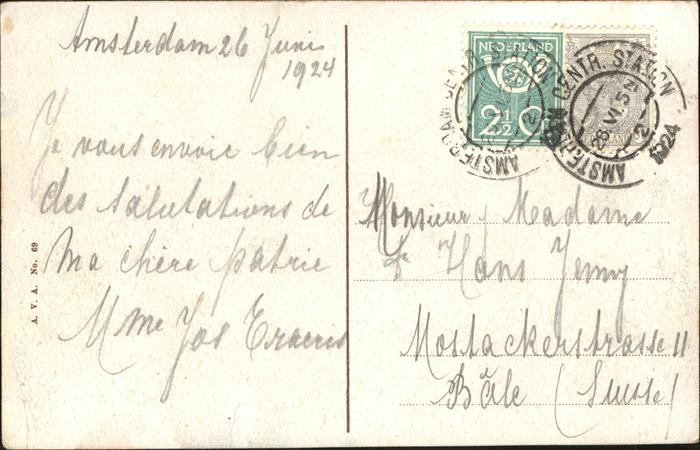 Amsterdam 26 Juni
1924
Je vous envoie bien
des salutations de
ma chère patrie
Mme Jos
A. V. A. No. 69
NEDERLAND
2½ C
AMSTERDAM CENTR. STATION
26 VI 5
1924
Monsieur, Madame
Hans Jenny
Mostackerstrasse 11
Bâle (Suisse)